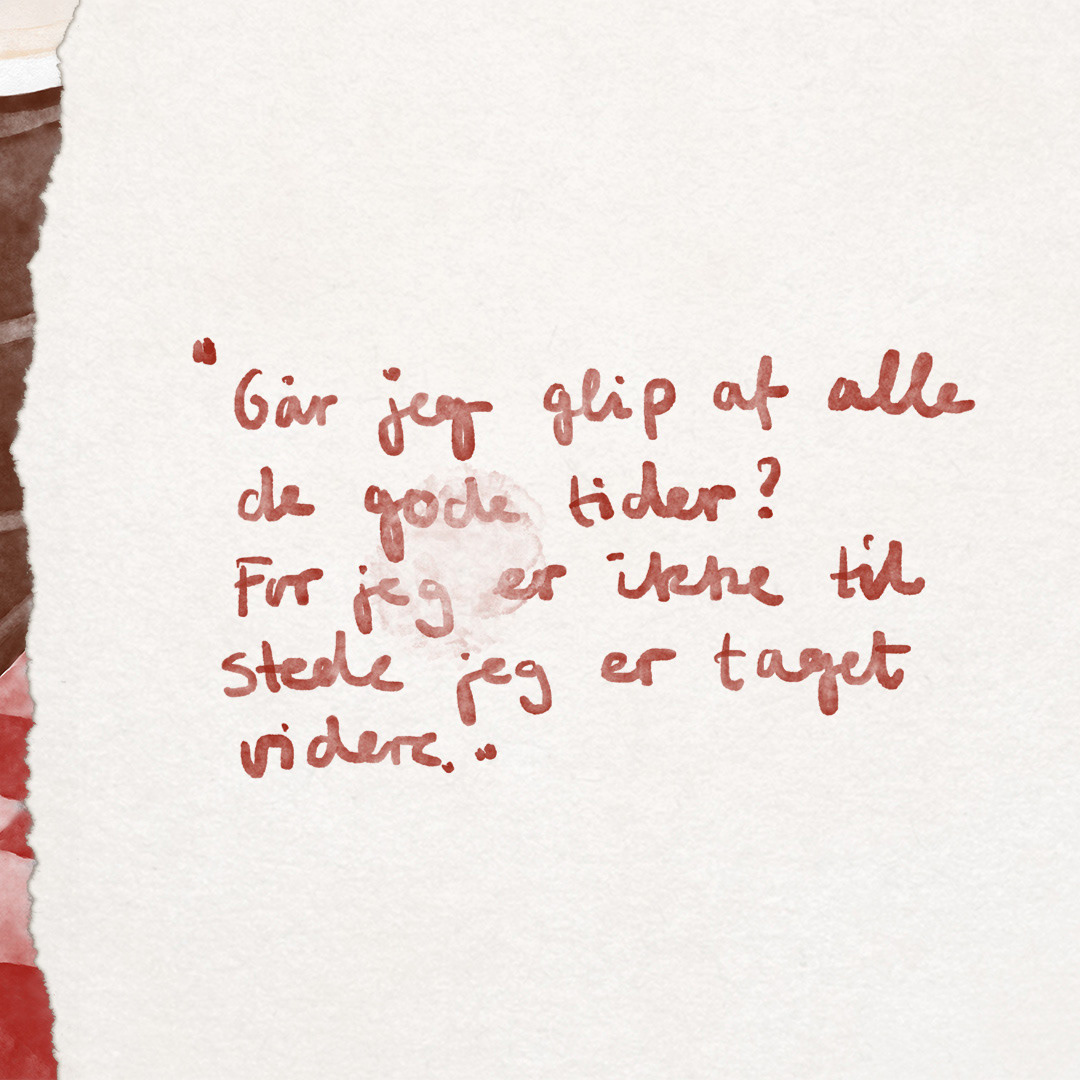 "Går jeg glip af alle
de gode tider?
For jeg er ikke til
stede jeg er taget
videre."